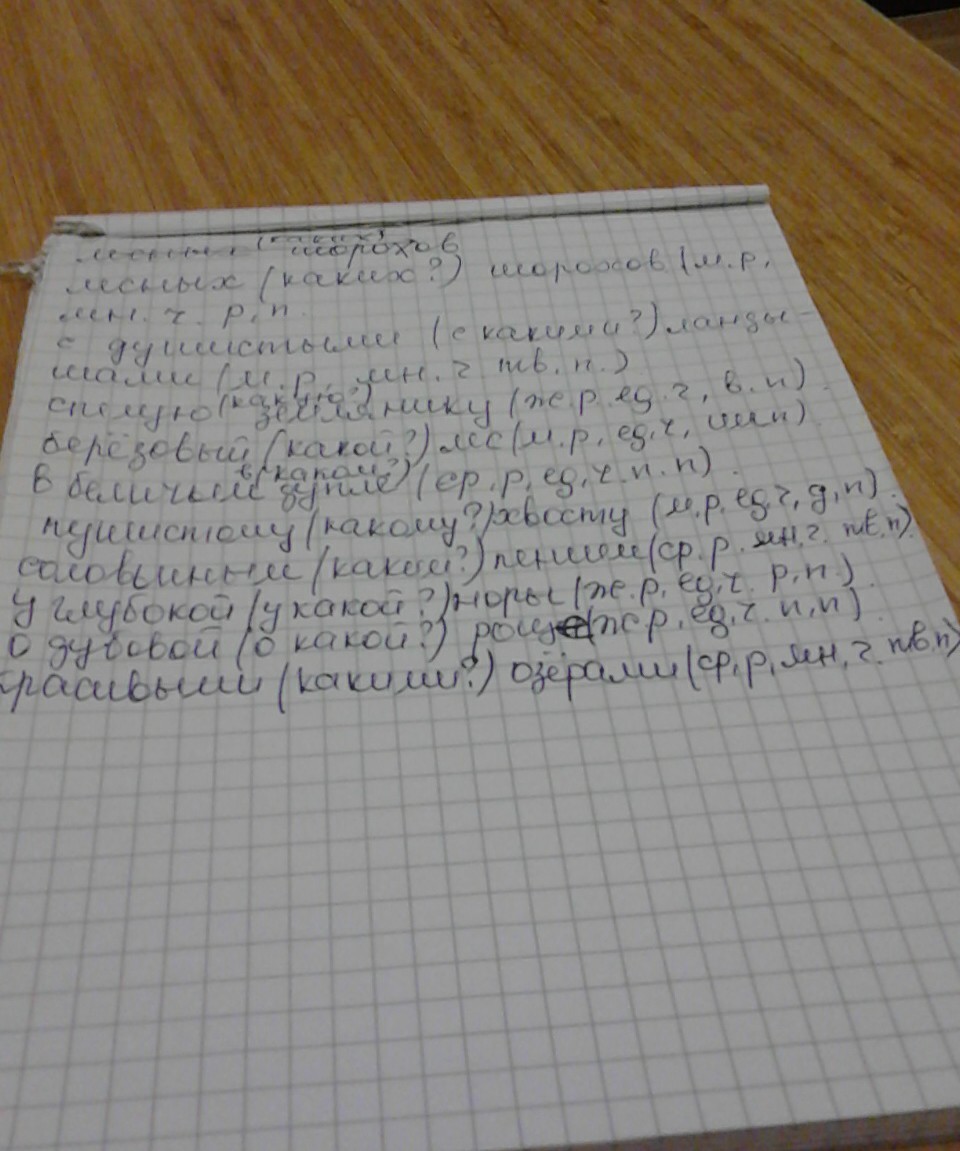 (каких)
лесных шорохов
лесных (каких?) шорохов (м.р,
мн. ч. р, п.
с душистыми (с какими?) ланды-
шами (м. р, мн. ч тв. п.)
спелую (какую?) землянику (же. р. ед. ч, в. п)
берёзовый (какой?) лес (м. р, ед, ч, им п)
в (каком?)
в беличьем дупле (ср. р, ед, ч. п. п)
пушистому (какому?) хвосту (м. р. ед, ч, д, п)
соловьиным (каким?) пением (ср. р. мн. ч. тв. п)
У глубокой (у какой?) норы (же. р, ед, ч. р, п.)
О дубовой (о какой?) роще (же р, ед, ч. п, п)
красивыми (какими?) озёрами (ср, р, мн, ч. тв. п)